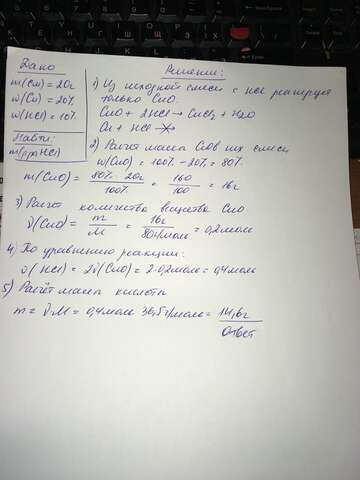 Дано
m(см) = 20г
w(Cu) = 20%
w(HCl) = 10%
Найти:
m(р-рHCl)
Решение:
1) Из исходной смеси с HCl реагирует
только CuO.
CuO + 2HCl → CuCl2 + H2O
Cu + HCl ↛
2) Расчет массы CuO в их смеси
w(CuO) = 100% - 20% = 80%
m(CuO) = 80% · 20г / 100% = 160 / 100 = 16г
3) Расчет количества вещества CuO
ν(CuO) = m / M = 16г / 80г/моль = 0,2моль
4) По уравнению реакции:
ν(HCl) = 2ν(CuO) = 2·0,2моль = 0,4моль
5) Расчёт массы кислоты
m = ν·M = 0,4моль · 36,5г/моль = 14,6г
Ответ